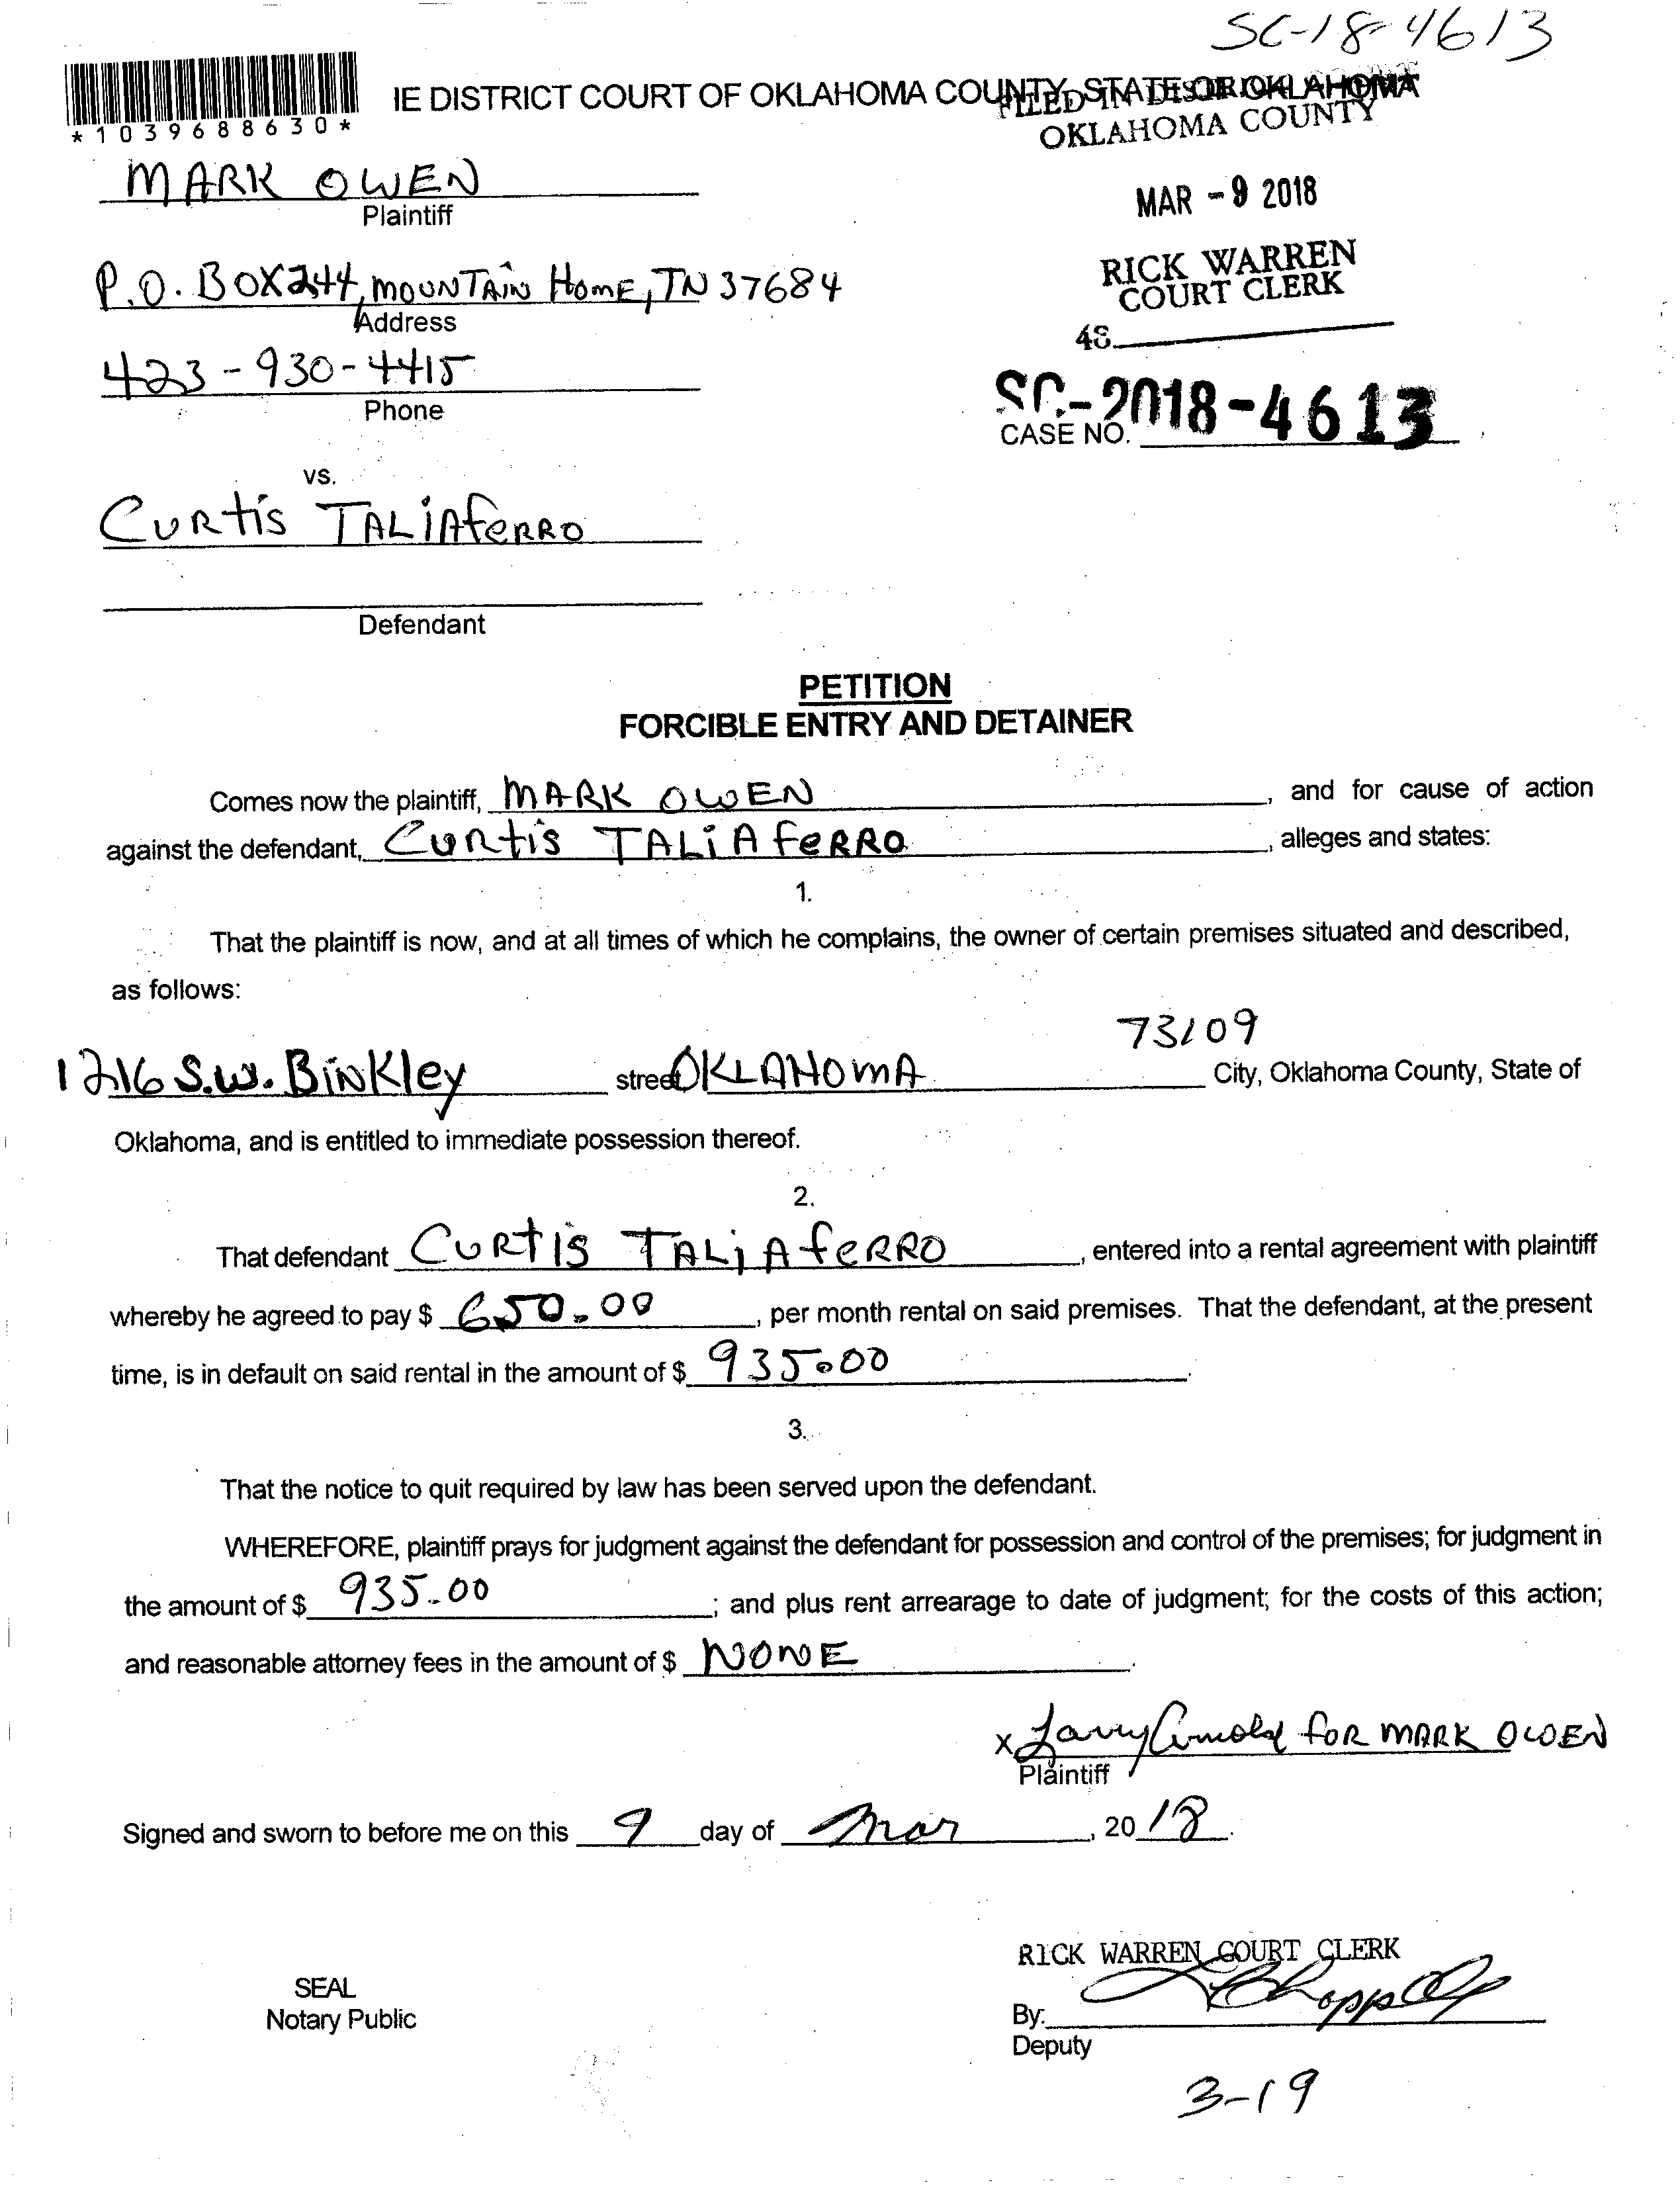 SC-18-4613
*1039688630*
IE DISTRICT COURT OF OKLAHOMA COUNTY, STATE OF OKLAHOMA
FILED IN DISTRICT COURT
OKLAHOMA COUNTY
MARK OWEN
Plaintiff
MAR -9 2018
P.O. BOX 244, MOUNTAIN HOME, TN 37684
Address
RICK WARREN
COURT CLERK
48
423-930-4415
Phone
SC-2018-4613
CASE NO.
vs.
CURTIS TALIAFERRO
Defendant
PETITION
FORCIBLE ENTRY AND DETAINER
Comes now the plaintiff, MARK OWEN, and for cause of action
against the defendant, CURTIS TALIAFERRO, alleges and states:
1.
That the plaintiff is now, and at all times of which he complains, the owner of certain premises situated and described,
as follows:
73109
1216 S.W. BINKley street OKLAHOMA City, Oklahoma County, State of
Oklahoma, and is entitled to immediate possession thereof.
2.
That defendant CURTIS TALIAFERRO, entered into a rental agreement with plaintiff
whereby he agreed to pay $ 650.00, per month rental on said premises. That the defendant, at the present
time, is in default on said rental in the amount of $ 935.00.
3.
That the notice to quit required by law has been served upon the defendant.
WHEREFORE, plaintiff prays for judgment against the defendant for possession and control of the premises; for judgment in
the amount of $ 935.00; and plus rent arrearage to date of judgment; for the costs of this action;
and reasonable attorney fees in the amount of $ NONE.
x Larry Arnold FOR MARK OWEN
Plaintiff
Signed and sworn to before me on this 9 day of Mar, 2018.
RICK WARREN COURT CLERK
SEAL
Notary Public
By:
Deputy
3-19